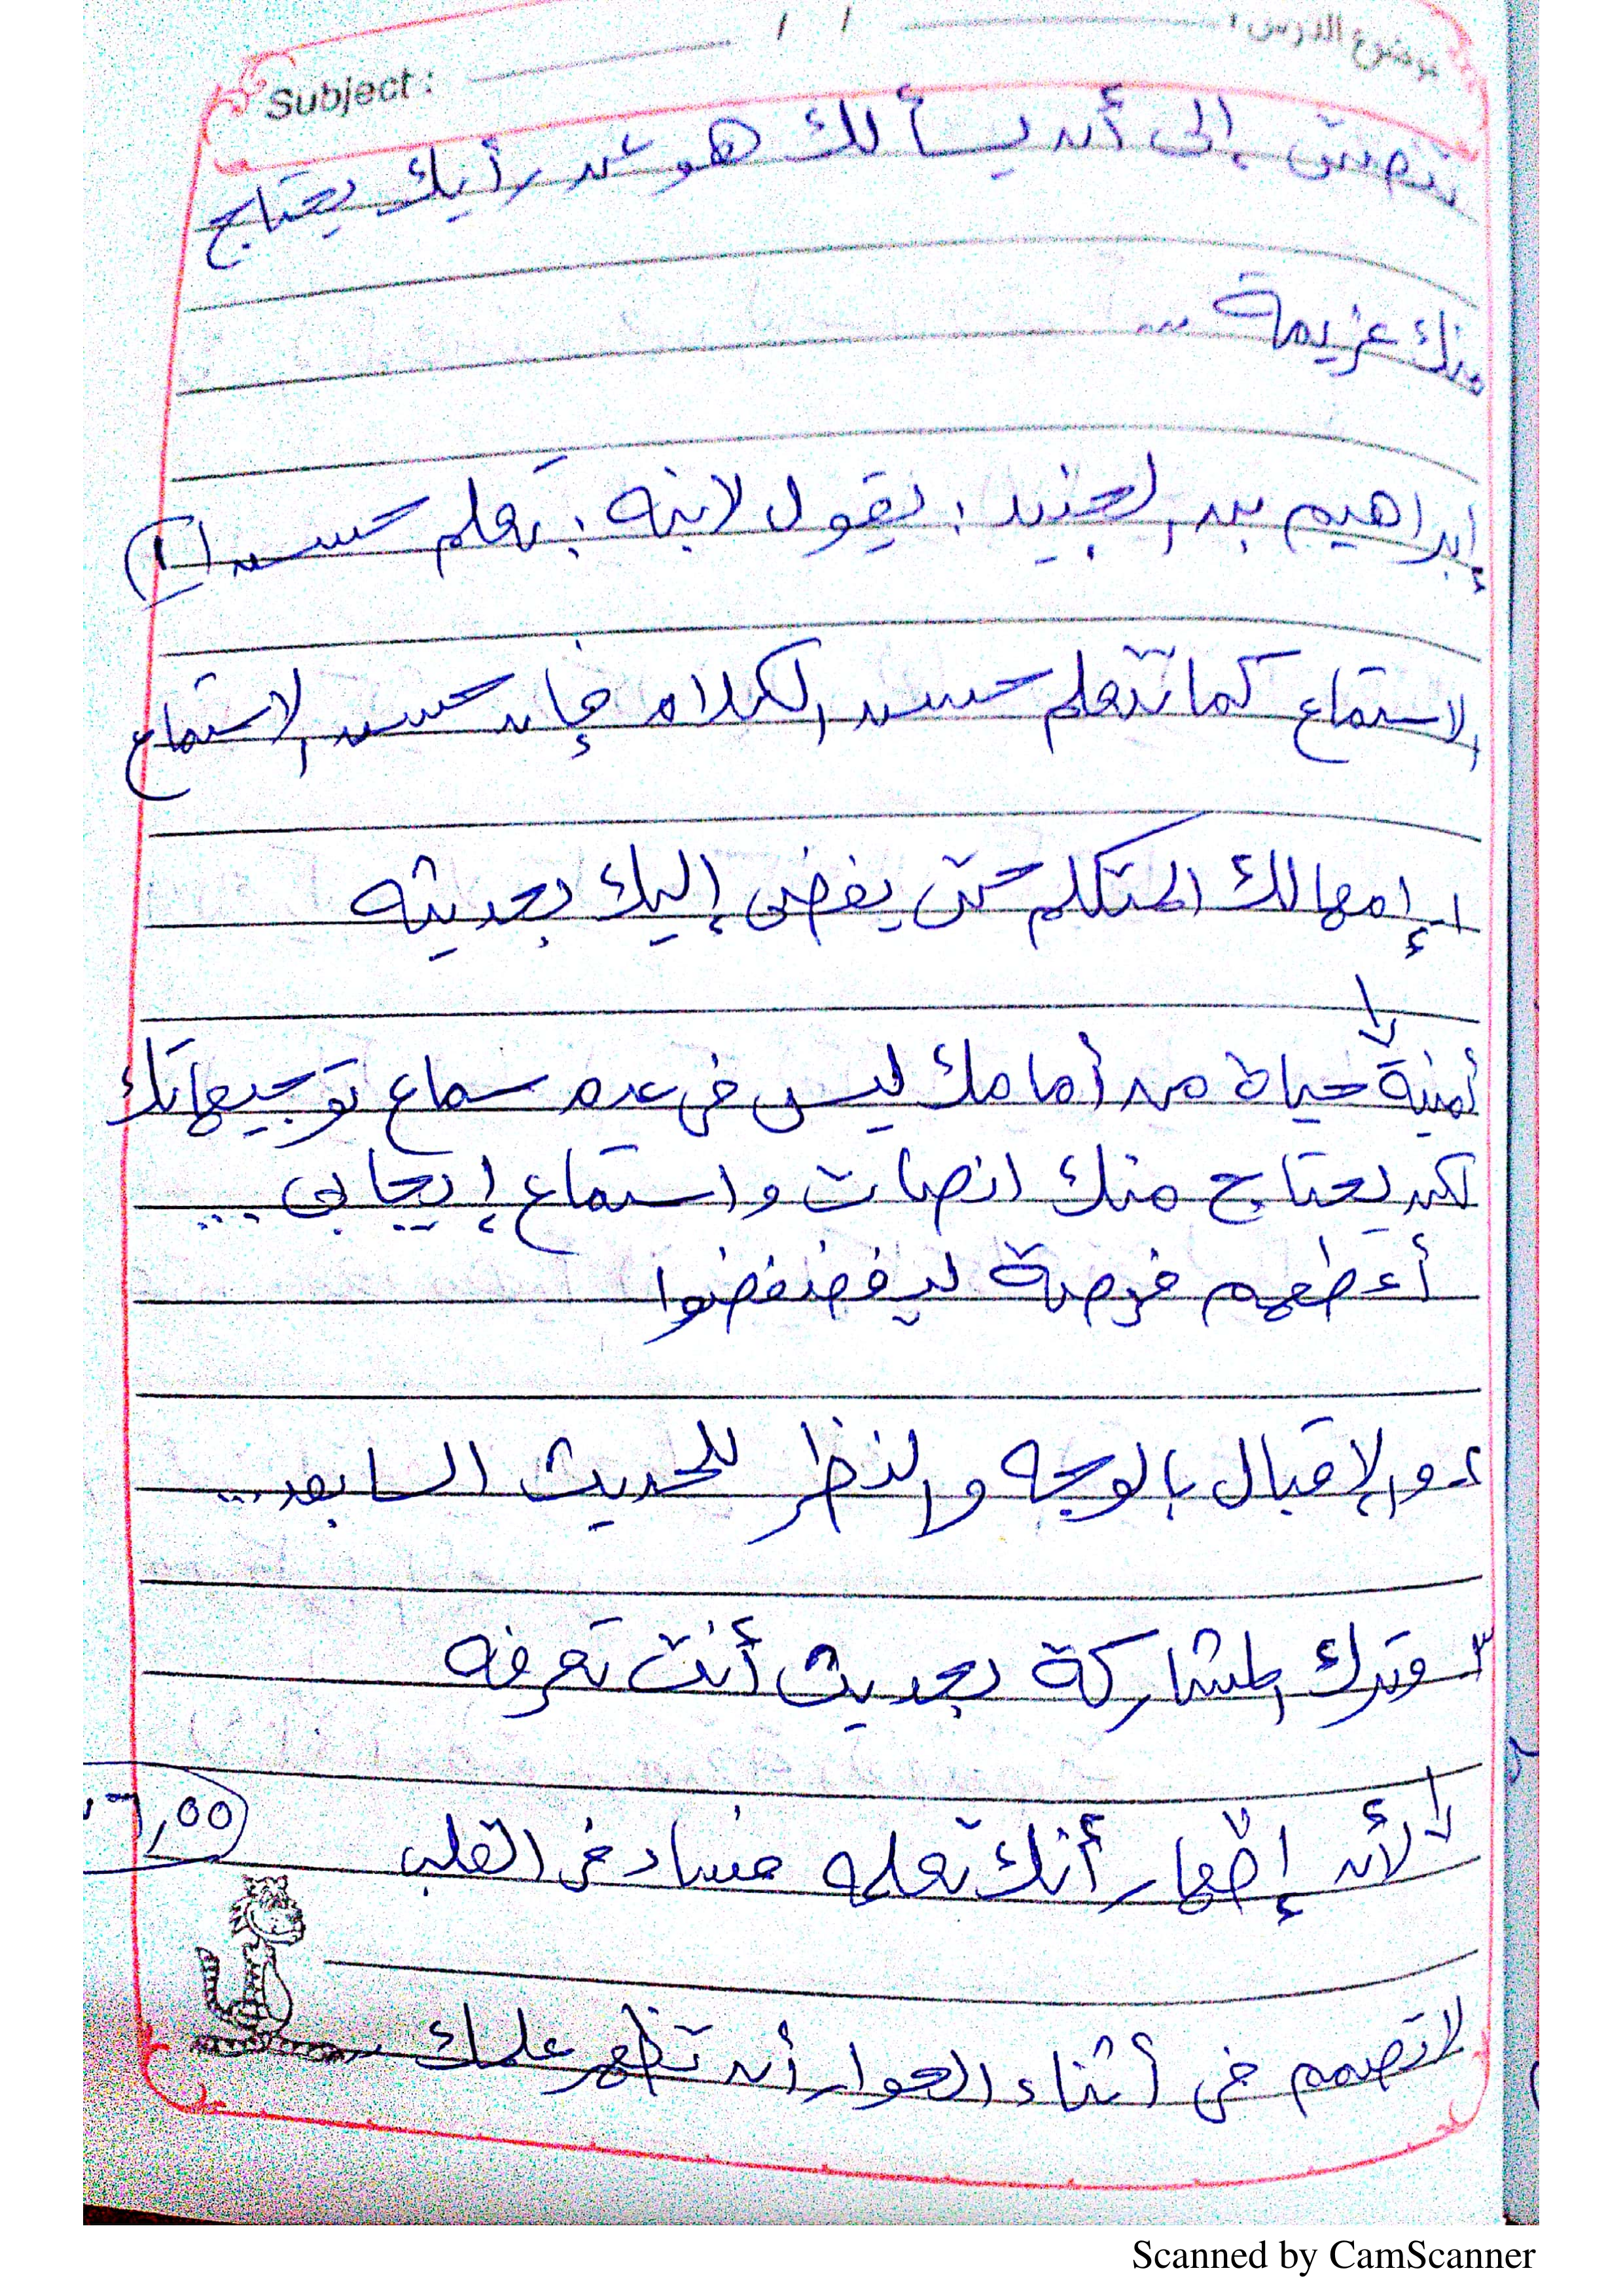 موضوع الدرس : / /
Subject :
تنصت إلى أن يسألك هو عن رأيك يحتاج
منك عزيمة ...
إبراهيم بن الجنيد : يقول لابنه : تعلم حسن
الاستماع كما تتعلم حسن الكلام فإن حسن الاستماع
١- إمهالك المتكلم حتى يفضى إليك بحديثه
أمنية حياة من أمامك ليس فى عدم سماع توجيهاتك
لكن يحتاج منك انصات واستماع إيجابى ...
أعطهم فرصة ليفضفضوا
٢- والإقبال بالوجه والنظر للحديث السابعد ...
٣- وترك المشاركة بحديث أنت تعرفه
لأن إظهار أنك تعلمه فساد فى القلب
لا تصمم فى أثناء الحوار أن تظهر علمك
Scanned by CamScanner